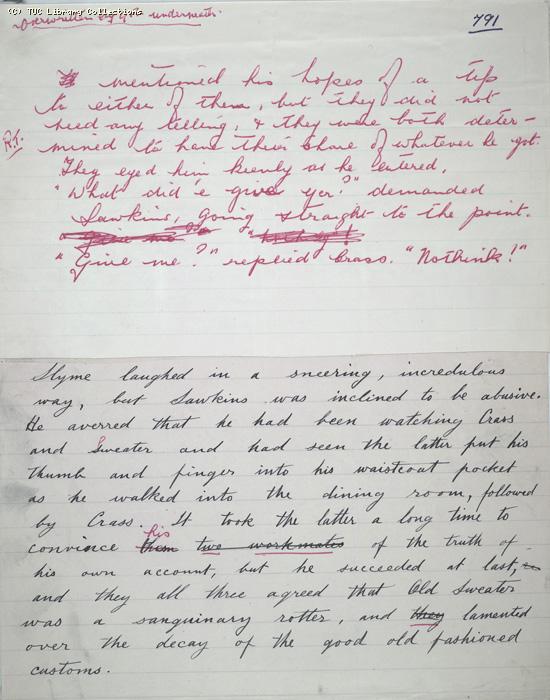 (C) TUC Library Collections
Overwritten underneath.
791
mentioned his hopes of a tip
to either of them, but they did not
need any telling, & they were both deter-
R.T.
mined to have their share of whatever he got.
They eyed him keenly as he entered,
"What did 'e give yer?" demanded
Sawkins, going straight to the point.
"Give me?" replied Crass. "Nothink!"
Slyme laughed in a sneering, incredulous
way, but Sawkins was inclined to be abusive.
He averred that he had been watching Crass
and Sweater and had seen the latter put his
thumb and finger into his waistcoat pocket
as he walked into the dining room, followed
by Crass. It took the latter a long time to
convince his them two workmates of the truth of
his own account, but he succeeded at last,
and they all three agreed that Old Sweater
was a sanguinary rotter, and they lamented
over the decay of the good old fashioned
customs.